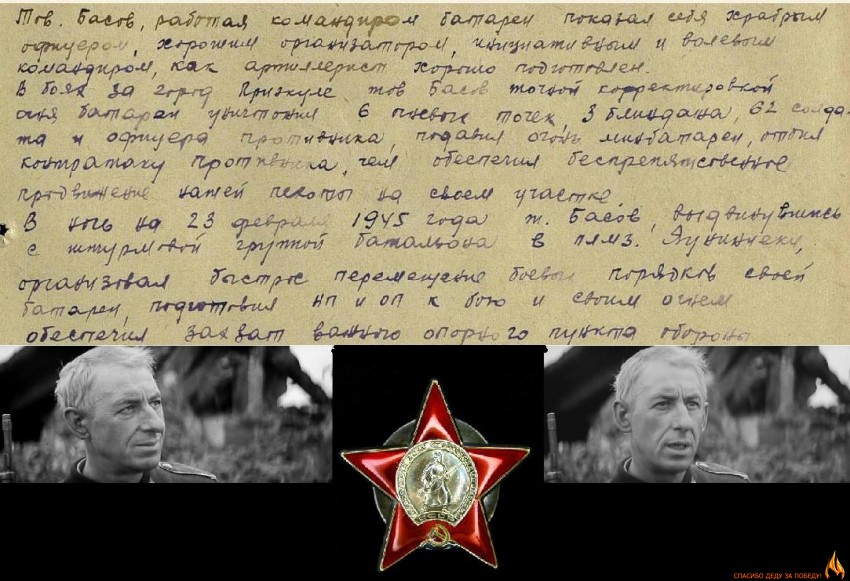 Тов. Басов, работая командиром батареи показал себя храбрым
офицером, хорошим организатором, инициативным и волевым
командиром, как артиллерист хорошо подготовлен.
В боях за город Приэкуле тов Басов точной корректировкой
огня батареи уничтожил 6 огневых точек, 3 блиндажа, 62 солда-
та и офицера противника, подавил огонь минбатареи, отбил
контратаку противника, чем обеспечил беспрепятственное
продвижение нашей пехоты на своем участке.
В ночь на 23 февраля 1945 года т. Басов, выдвинувшись
с штурмовой группой батальона в
организовал быстрое перемещение боевых порядков своей
батареи, подготовил НП и ОП к бою и своим огнем
обеспечил захват важного опорного пункта обороны
СПАСИБО ДЕДУ ЗА ПОБЕДУ!